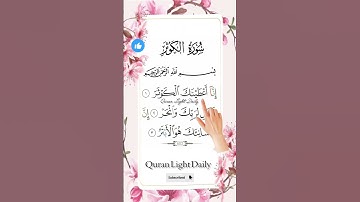 سُورَةُ الْكَوْثَرِ
بِسْمِ اللَّهِ الرَّحْمَٰنِ الرَّحِيمِ
إِنَّا أَعْطَيْنَكَ الْكَوْثَرَ ١
Quran Light Daily
لِرَبِّكَ وَانْحَرْ ٢ إِنَّ
شَانِئَكَ هُوَ الْأَبْتَرُ ٣
Quran Light Daily
Subscribed